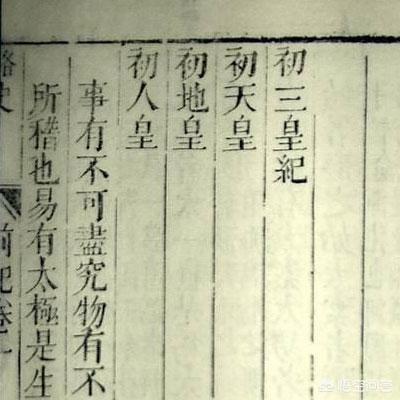 初三皇紀
初天皇
初地皇
初人皇
事有不可盡究物有不
所稽也易有太極是生
路史
前紀卷一
悟空问答